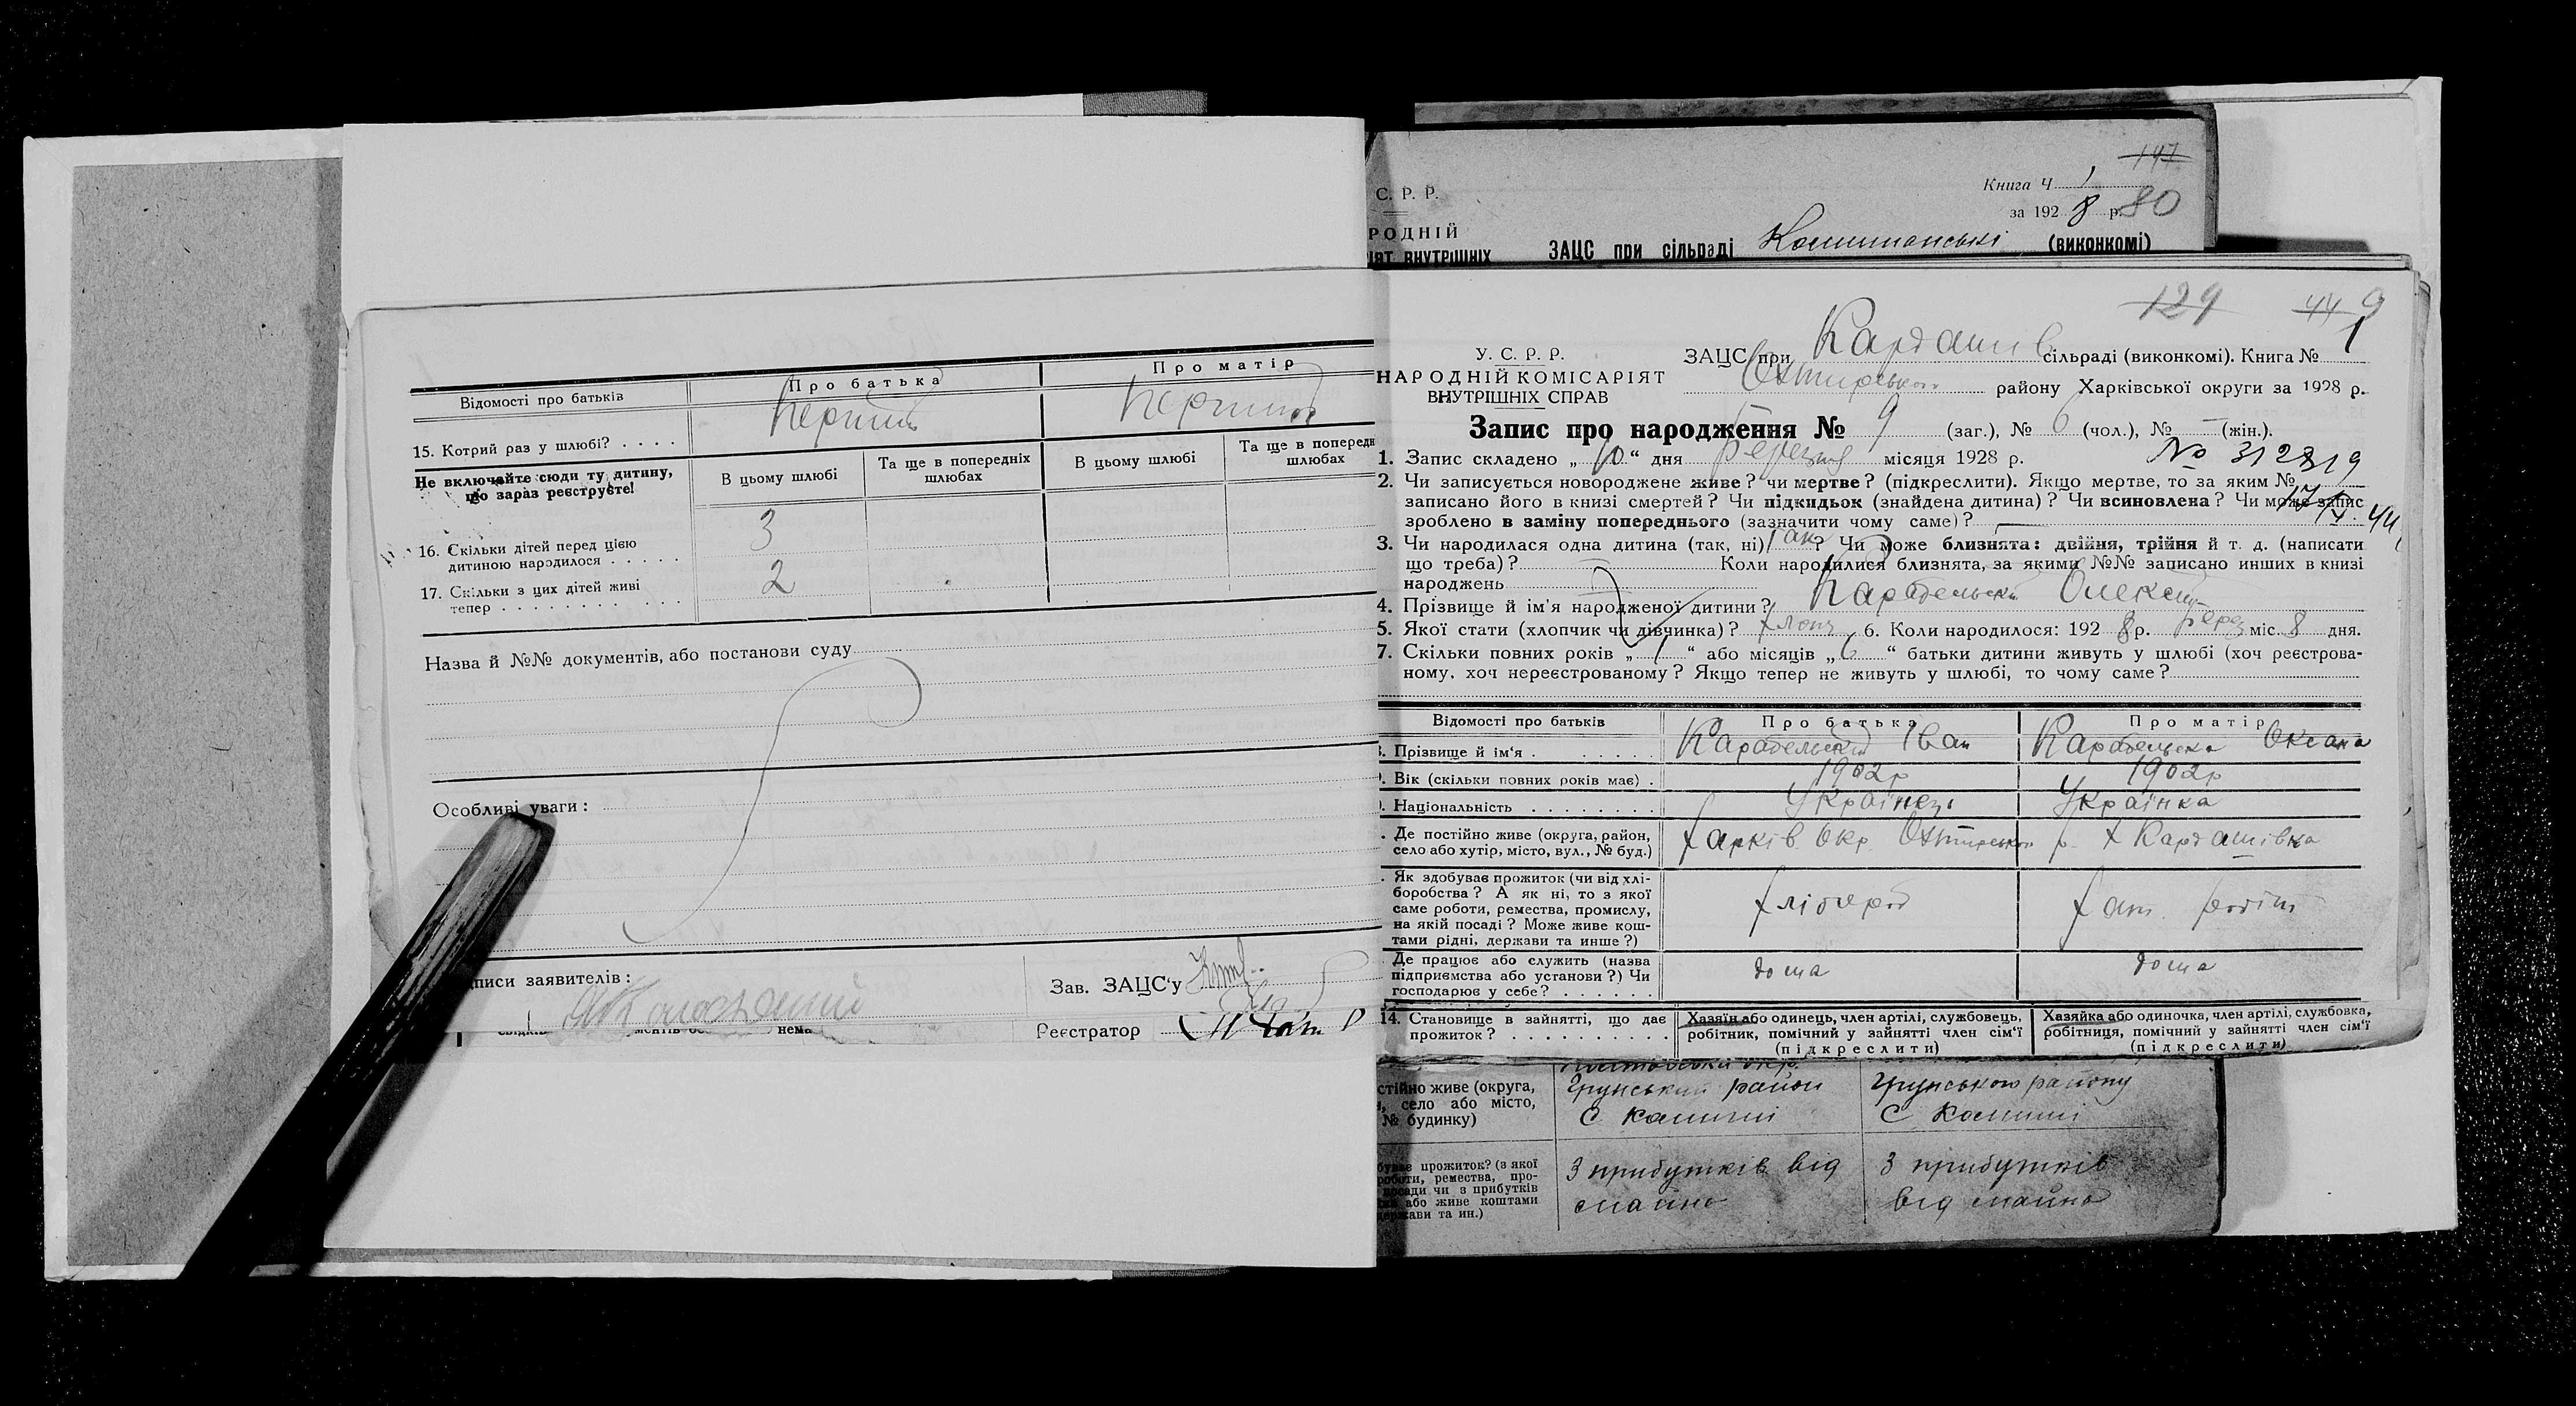 Відомості про батьків
Про батька
Про матір
15. Котрий раз у шлюбі? . . . .
Не включайте сюди ту дитину,
що зараз реєструєте!
В цьому шлюбі
Та ще в попередніх
шлюбах
В цьому шлюбі
Та ще в попередн
шлюбах
16. Скільки дітей перед цією
дитиною народилося . . . . .
3
17. Скільки з цих дітей живі
тепер . . . . . . . . . . . .
2
Назва й №№ документів, або постанови суду
Особливі уваги:
писи заявителів:
Зав. ЗАЦС'у
нема
Реєстратор
С. Р. Р.
РОДНІЙ
ІЯТ ВНУТРІШНІХ
147
Книга Ч. 1
за 1928 р. 80
ЗАЦС при сільраді (виконкомі)
129 44 9
У. С. Р. Р.
НАРОДНІЙ КОМІСАРІЯТ
ВНУТРІШНІХ СПРАВ
ЗАЦС при Кардашів сільраді (виконкомі). Книга № 1
Охтирського району Харківської округи за 1928 р.
Запис про народження № 9 (заг.), № 6 (чол.), № — (жін.).
1. Запис складено „10“ дня березня місяця 1928 р.
№ 312819
2. Чи записується новороджене живе? чи мертве? (підкреслити). Якщо мертве, то за яким №
записано його в книзі смертей? Чи підкидьок (знайдена дитина)? Чи всиновлена? Чи може запис
зроблено в заміну попереднього (зазначити чому саме)? —
3. Чи народилася одна дитина (так, ні) Так? Чи може близнята: двійня, трійня й т. д. (написати
що треба)? Коли народилися близнята, за якими №№ записано инших в книзі
народжень
4. Прізвище й ім'я народженої дитини? Карабельський Олекса
5. Якої стати (хлопчик чи дівчинка)? хлопч 6. Коли народилося: 1928 р. берез міс. 8 дня.
7. Скільки повних років „1“ або місяців „6“ батьки дитини живуть у шлюбі (хоч реєстрова-
ному, хоч нереєстрованому? Якщо тепер не живуть у шлюбі, то чому саме?
Відомості про батьків
Про батька
Про матір
. Прізвище й ім'я . . . . . .
Карабельський Іван
Карабельська Оксана
. Вік (скільки повних років має) .
1902р
1902р
. Національність . . . . . . . .
Українець
Українка
. Де постійно живе (округа, район,
село або хутір, місто, вул., № буд.)
Харків. Окр. Охтирського р. х Кардашівка
. Як здобуває прожиток (чи від хлі-
боробства? А як ні, то з якої
саме роботи, ремества, промислу,
на якій посаді? Може живе кош-
тами рідні, держави та инше?)
хлібороб
Де працює або служить (назва
підприємства або установи?) Чи
господарює у себе? . . . . . .
дома
дома
14. Становище в зайнятті, що дає
прожиток? . . . . . . . . . .
Хазяїн або одинець, член артілі, службовець,
робітник, помічний у зайнятті член сім'ї
(підкреслити)
Хазяйка або одиночка, член артілі, службовка,
робітниця, помічний у зайнятті член сім'ї
(підкреслити)
стійно живе (округа,
село або місто,
№ будинку)
Грунський район
Грунського району
прожиток? (з якої
роботи, ремества, про-
посади чи з прибутків
або живе коштами
держави та ин.)
З прибутків від
майно
З прибутків
від майно